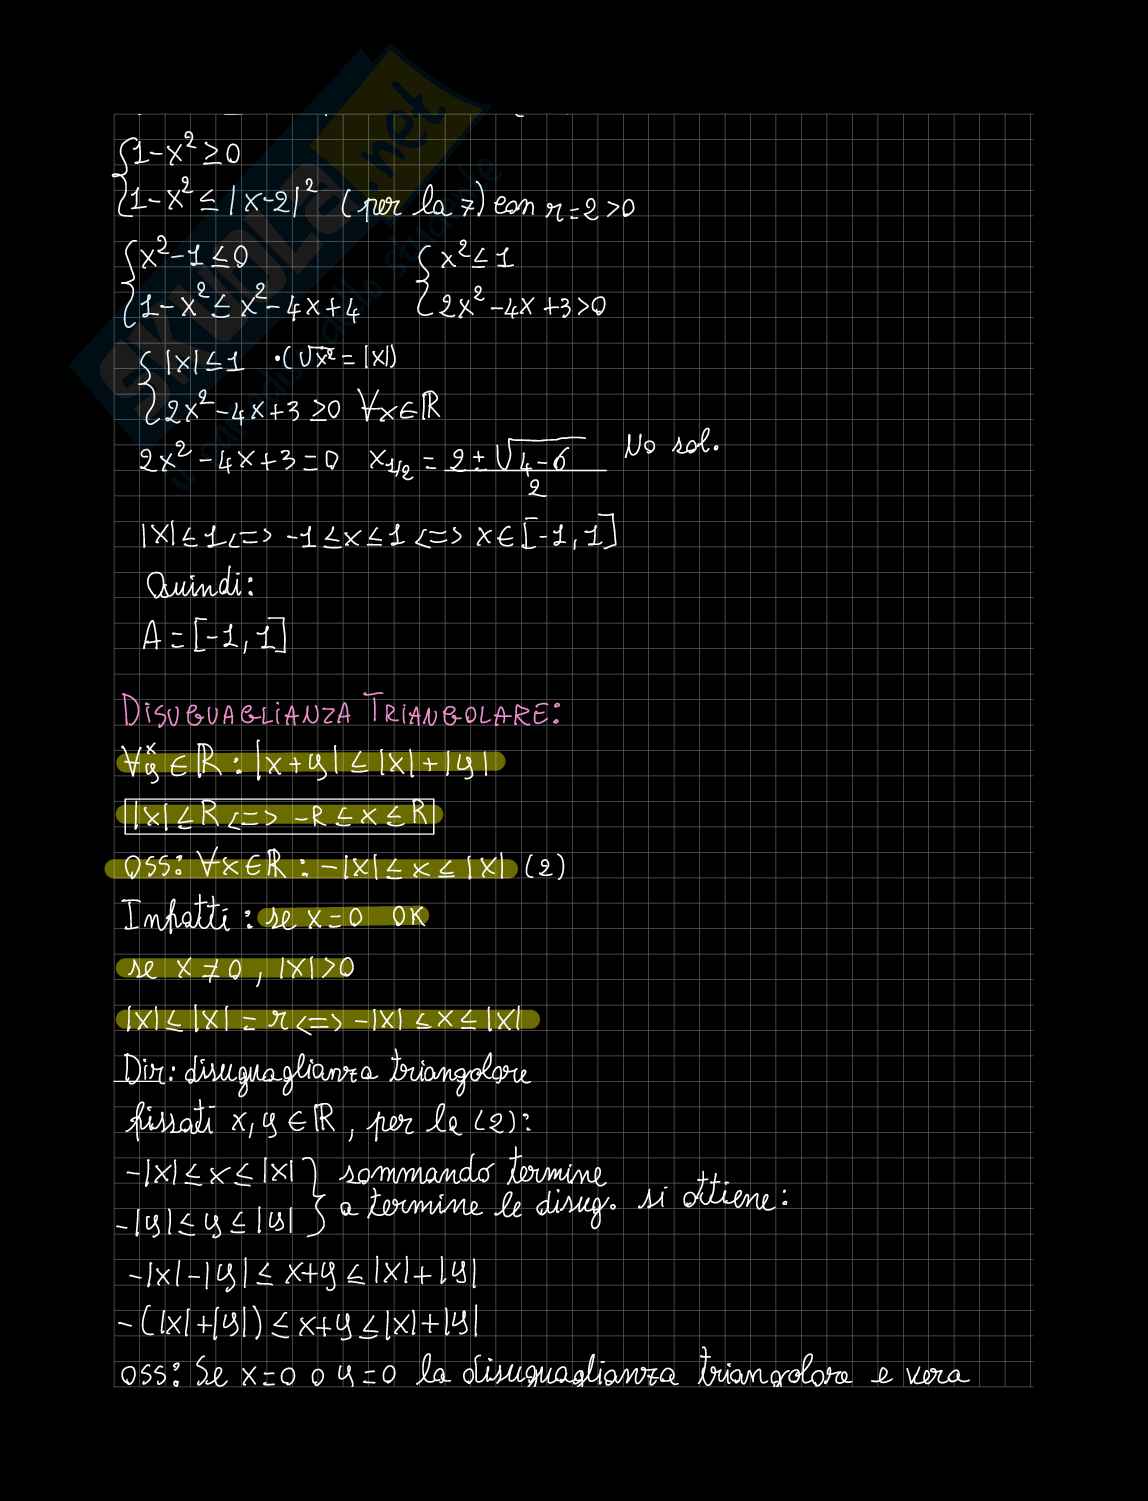 {1-x² ≥ 0
{1-x² ≤ |x-2|² (per la 7) con r=2>0
{x²-1 ≤ 0 {x² ≤ 1
{1-x² ≤ x²-4x+4 {2x²-4x+3>0
{|x| ≤ 1 •(√x² = |x|)
{2x²-4x+3 ≥ 0 ∀x∈ℝ
2x²-4x+3=0 x1/2 = (2±√4-6)/2 No sol.
|x| ≤ 1 <=> -1 ≤ x ≤ 1 <=> x∈[-1,1]
Quindi:
A = [-1,1]
DISUGUAGLIANZA TRIANGOLARE:
∀x y ∈ ℝ : |x+y| ≤ |x|+|y|
|x| ≤ R <=> -R ≤ x ≤ R
OSS: ∀x∈ℝ : -|x| ≤ x ≤ |x| (2)
Infatti : se x=0 OK
se x≠0 , |x|>0
|x| ≤ |x| = r <=> -|x| ≤ x ≤ |x|
Dir: disuguaglianza triangolare
fissati x,y ∈ ℝ , per le (2):
-|x| ≤ x ≤ |x| } sommando termine
-|y| ≤ y ≤ |y| } a termine le disug. si ottiene:
-|x|-|y| ≤ x+y ≤ |x|+|y|
-(|x|+|y|) ≤ x+y ≤ |x|+|y|
OSS: Se x=0 o y=0 la disuguaglianza triangolare e vera
SKUOLA.net